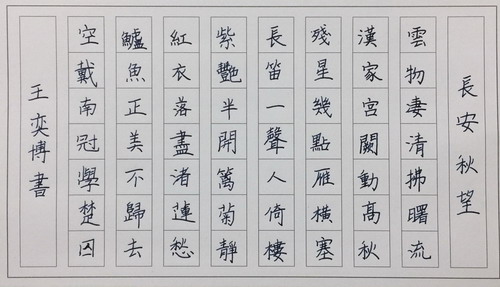 長安秋望
雲物淒清拂曙流
漢家宮闕動高秋
殘星幾點雁橫塞
長笛一聲人倚樓
紫艷半開篱菊靜
紅衣落盡渚蓮愁
鱸魚正美不歸去
空戴南冠學楚囚
王奕博書